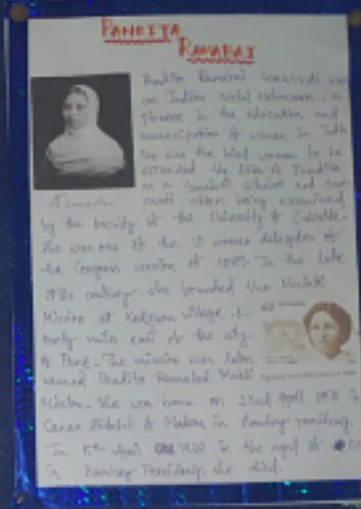 PANDITA
RAMABAI
Pandita Ramabai Sarasvati was
an Indian social reformer, a
pioneer in the education and
emancipation of women in India
She was the first woman to be
awarded the title of Pandita
as a Sanskrit scholar and Sara
swati after being examined
Ramabai
by the faculty of the University of Calcutta.
She was one of the 10 women delegates of
the Congress session of 1889. In the late
1890s century she founded the Mukti
Mission at Kedgaon village,
forty miles east of the city
of Pune. The mission was later
named Pandita Ramabai Mukti
Mission. She was born on 23rd April 1858 in
Canara District of Madras in Bombay presidency.
In 5th April 1922 in the age of
in Bombay Presidency she died.